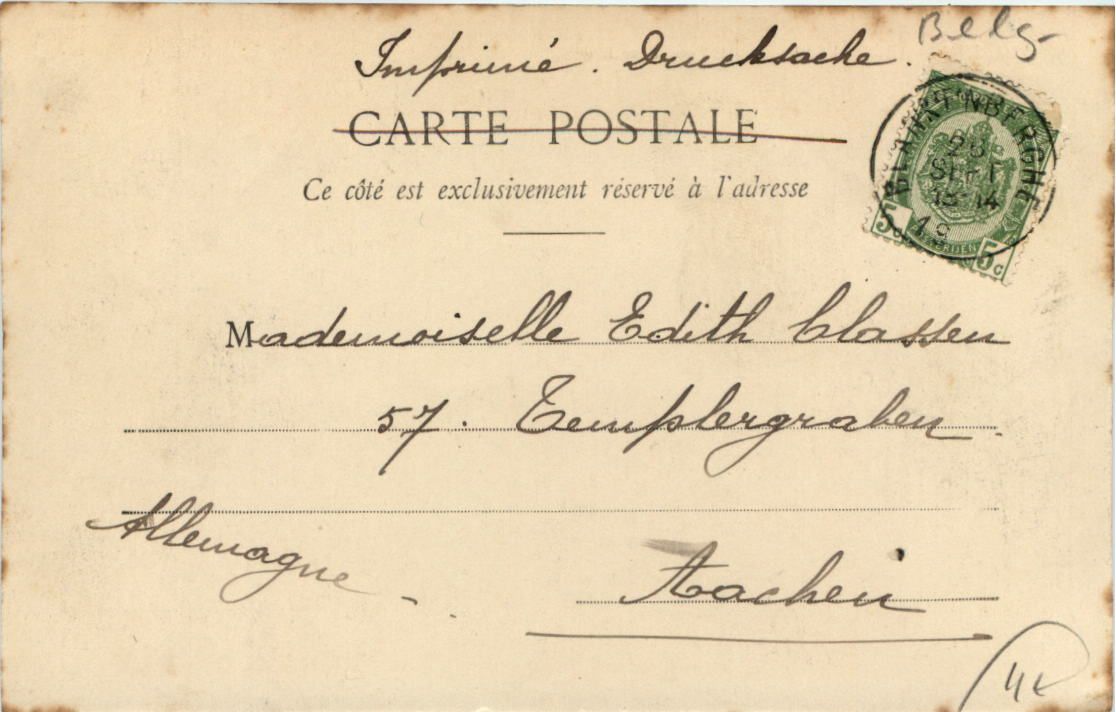 Belg-
Imprimé. Drucksache.
CARTE POSTALE
Ce côté est exclusivement réservé à l'adresse
BLANKENBERGHE
SEPT
13-14
19
5c 5c
Mademoiselle Edith Classen
57. Templergraben.
Allemagne -
Aachen